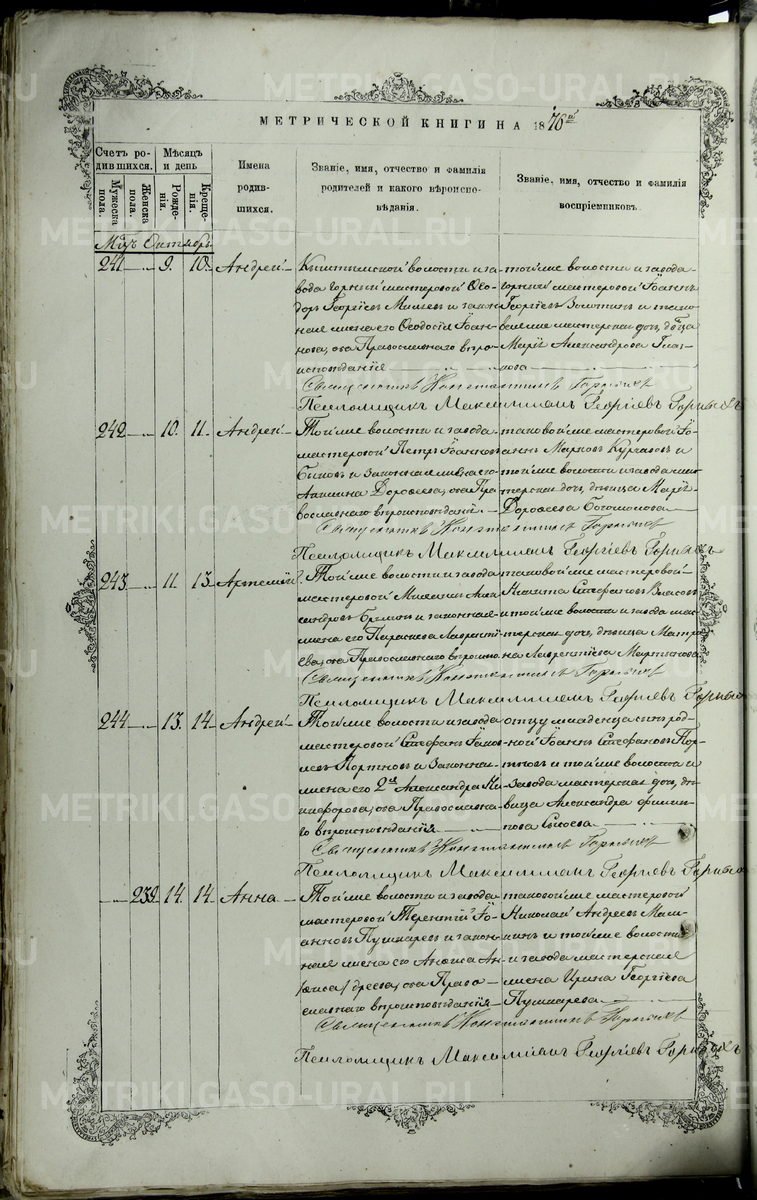 МЕТРИЧЕСКОЙ КНИГИ НА 1876й
Счетъ родившихся.
Мужеска пола.
Женска пола.
Мѣсяцъ и день
Рожденія.
Крещенія.
Имена родившихся.
Званіе, имя, отчество и фамилія
родителей и какого вѣроиспо-
вѣданія.
Званіе, имя, отчество и фамилія
воспріемниковъ.
Октябрь
241 9. 10. Андрей
Кыштымской волости и за-
вода горный мастеровой Ѳео-
доръ Георгіевъ и закон
ная жена его Ѳеодосія Іоан-
нова, оба Православнаго вѣро-
исповѣданія
той же волости и завода
горный мастеровой Іоаннъ
Георгіевъ и тако-
вая же мастерская дочь, дѣвица
Марія Александрова
Священникъ Константинъ
Псаломщикъ Максимиліанъ Георгіевъ Горныхъ
242 10. 11. Андрей
Той же волости и завода
мастеровой Петръ Іоанновъ
Быковъ и законная жена его
Доровеева, оба Пра-
вославнаго вѣроисповѣданія
таковой же мастеровой Іо-
аннъ Марковъ и
той же волости и завода мас-
терская дочь, дѣвица Марія
Доровеева Богомолова
Священникъ Константинъ
Псаломщикъ Максимиліанъ Георгіевъ Горныхъ
243 11. 13. Артемій
Той же волости и завода
мастеровой Михаилъ Алек
сандровъ и законная
жена его Параскева Лаврентi
ева, оба Православнаго вѣроиспо
таковой же мастеровой
Никита Стефановъ Власовъ
и той же волости и завода мас
терская дочь, дѣвица Матре
на Лаврентіева Мартынова
Священникъ Константинъ
Псаломщикъ Максимиліанъ Георгіевъ Горныхъ
244 13. 14. Андрей
Той же волости и завода
мастеровой Стефанъ Іаков
левъ Портновъ и Законная
жена его 2й Александра Ни
кифорова, оба Православна-
го вѣроисповѣданія
отцу младенца сынъ род-
ной Іоаннъ Стефановъ Пор-
тновъ и той же волости и
Завода мастерская дочь, дѣ-
вица Александра Филип-
пова Сысоева
Священникъ Константинъ
Псаломщикъ Максимиліанъ Георгіевъ Горныхъ
239. 14. 14. Анна
Той же волости и завода
мастеровой Терентій Іо-
анновъ Пушкаревъ и закон-
ная жена его Ан-
дреева, оба Право-
славнаго вѣроисповѣданія
таковой же мастеровой
Николай Андреевъ
и той же волости
и завода мастерская
жена Ирина Георгіева
Пушкарева
Священникъ Константинъ
Псаломщикъ Максимиліанъ Георгіевъ Горныхъ
METRIKI.GASO-URAL.RU